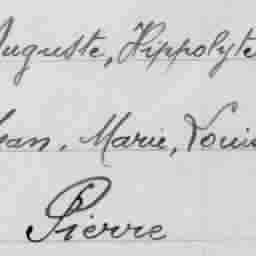 Auguste, Hippolyte
Jean, Marie, Louis
Pierre